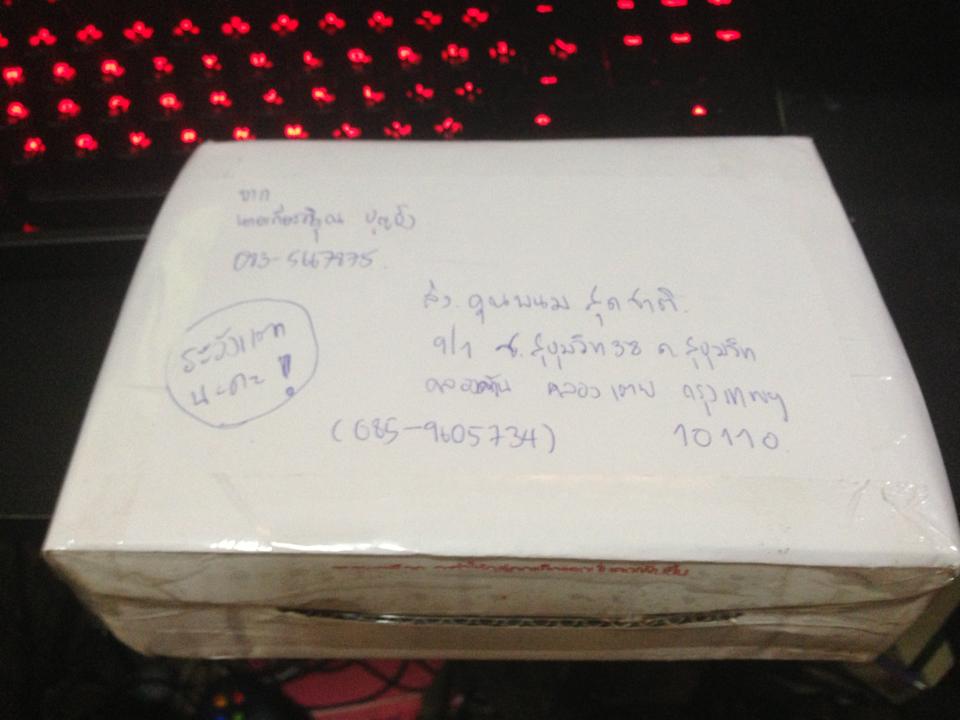 จาก
083-5467875
ส่ง. คุณพนม สุดชาติ.
9/1 ซ. สุขุมวิท 38 ถ. สุขุมวิท
คลองตัน คลองเตย กรุงเทพฯ
(085-9605734) 10110
ระวังแตก
นะคะ!